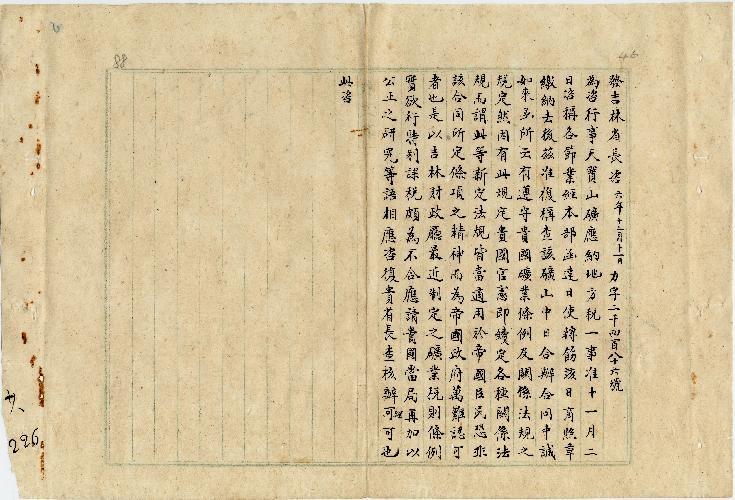 發吉林省長咨 六年十二月十一日 力字二千四百八十六號
為咨行事天寶山礦應納地方稅一事准十一月二
日咨稱各節業經本部函達日使轉飭該日商照章
繳納去後茲准復稱查該礦山中日合辦合同中誠
如來函所云有遵守貴國礦業條例及關係法規之
規定然因有此規定貴國官憲即擬定各種關係法
規而謂此等新定法規皆當適用於帝國臣民恐非
該合同所定條項之精神而為帝國政府萬難認可
者也是以吉林財政廳最近制定之礦業稅則條例
實欲行特別課稅頗為不合應請貴國當局再加以
公正之研究等語相應咨復貴省長查核辦理可也
此咨
88
46
226